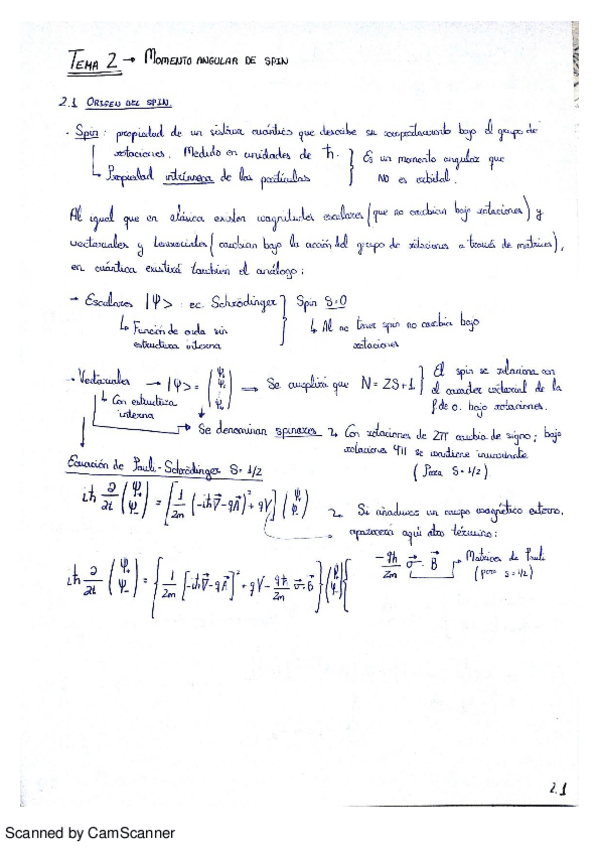 TEMA 2 → MOMENTO ANGULAR DE SPIN
2.1 ORIGEN DEL SPIN.
· Spin: propiedad de un sistema cuántico que describe su comportamiento bajo el grupo de
rotaciones. Medido en unidades de ħ. } Es un momento angular que
↳ Propiedad intrínseca de las partículas NO es orbital.
Al igual que en clásica existen magnitudes escalares (que no cambian bajo rotaciones) y
vectoriales y tensoriales (cambian bajo la acción del grupo de rotaciones a través de matrices),
en cuántica existirá también el análogo:
→ Escalares |Ψ> : ec. Schrödinger } Spin S=0
↳ Función de onda sin ↳ Al no tener spin no cambia bajo
estructura interna rotaciones
→ Vectoriales → |Ψ> = → Se cumplirá que N = 2S+1 } El spin se relaciona con
↳ Con estructura el carácter vectorial de la
interna f de o. bajo rotaciones.
→ Se denominan spinores ↳ Con rotaciones de 2π cambia de signo; bajo
rotaciones 4π se mantiene invariante
(Para S=1/2)
Ecuación de Pauli-Schrödinger S=1/2
iħ ∂/∂t (Ψ₊ Ψ₋) = [1/2m (-iħ∇⃗-qA⃗)² + qV] (Ψ₊ Ψ₋) Si añadimos un campo magnético externo,
aparecerá aquí otro término:
-qħ/2m σ⃗·B⃗ → Matrices de Pauli
(para s=1/2)
iħ ∂/∂t (Ψ₊ Ψ₋) = {1/2m [-iħ∇⃗-qA⃗]² + qV - qħ/2m σ⃗·B⃗} (Ψ₊ Ψ₋)
2.1
Scanned by CamScanner